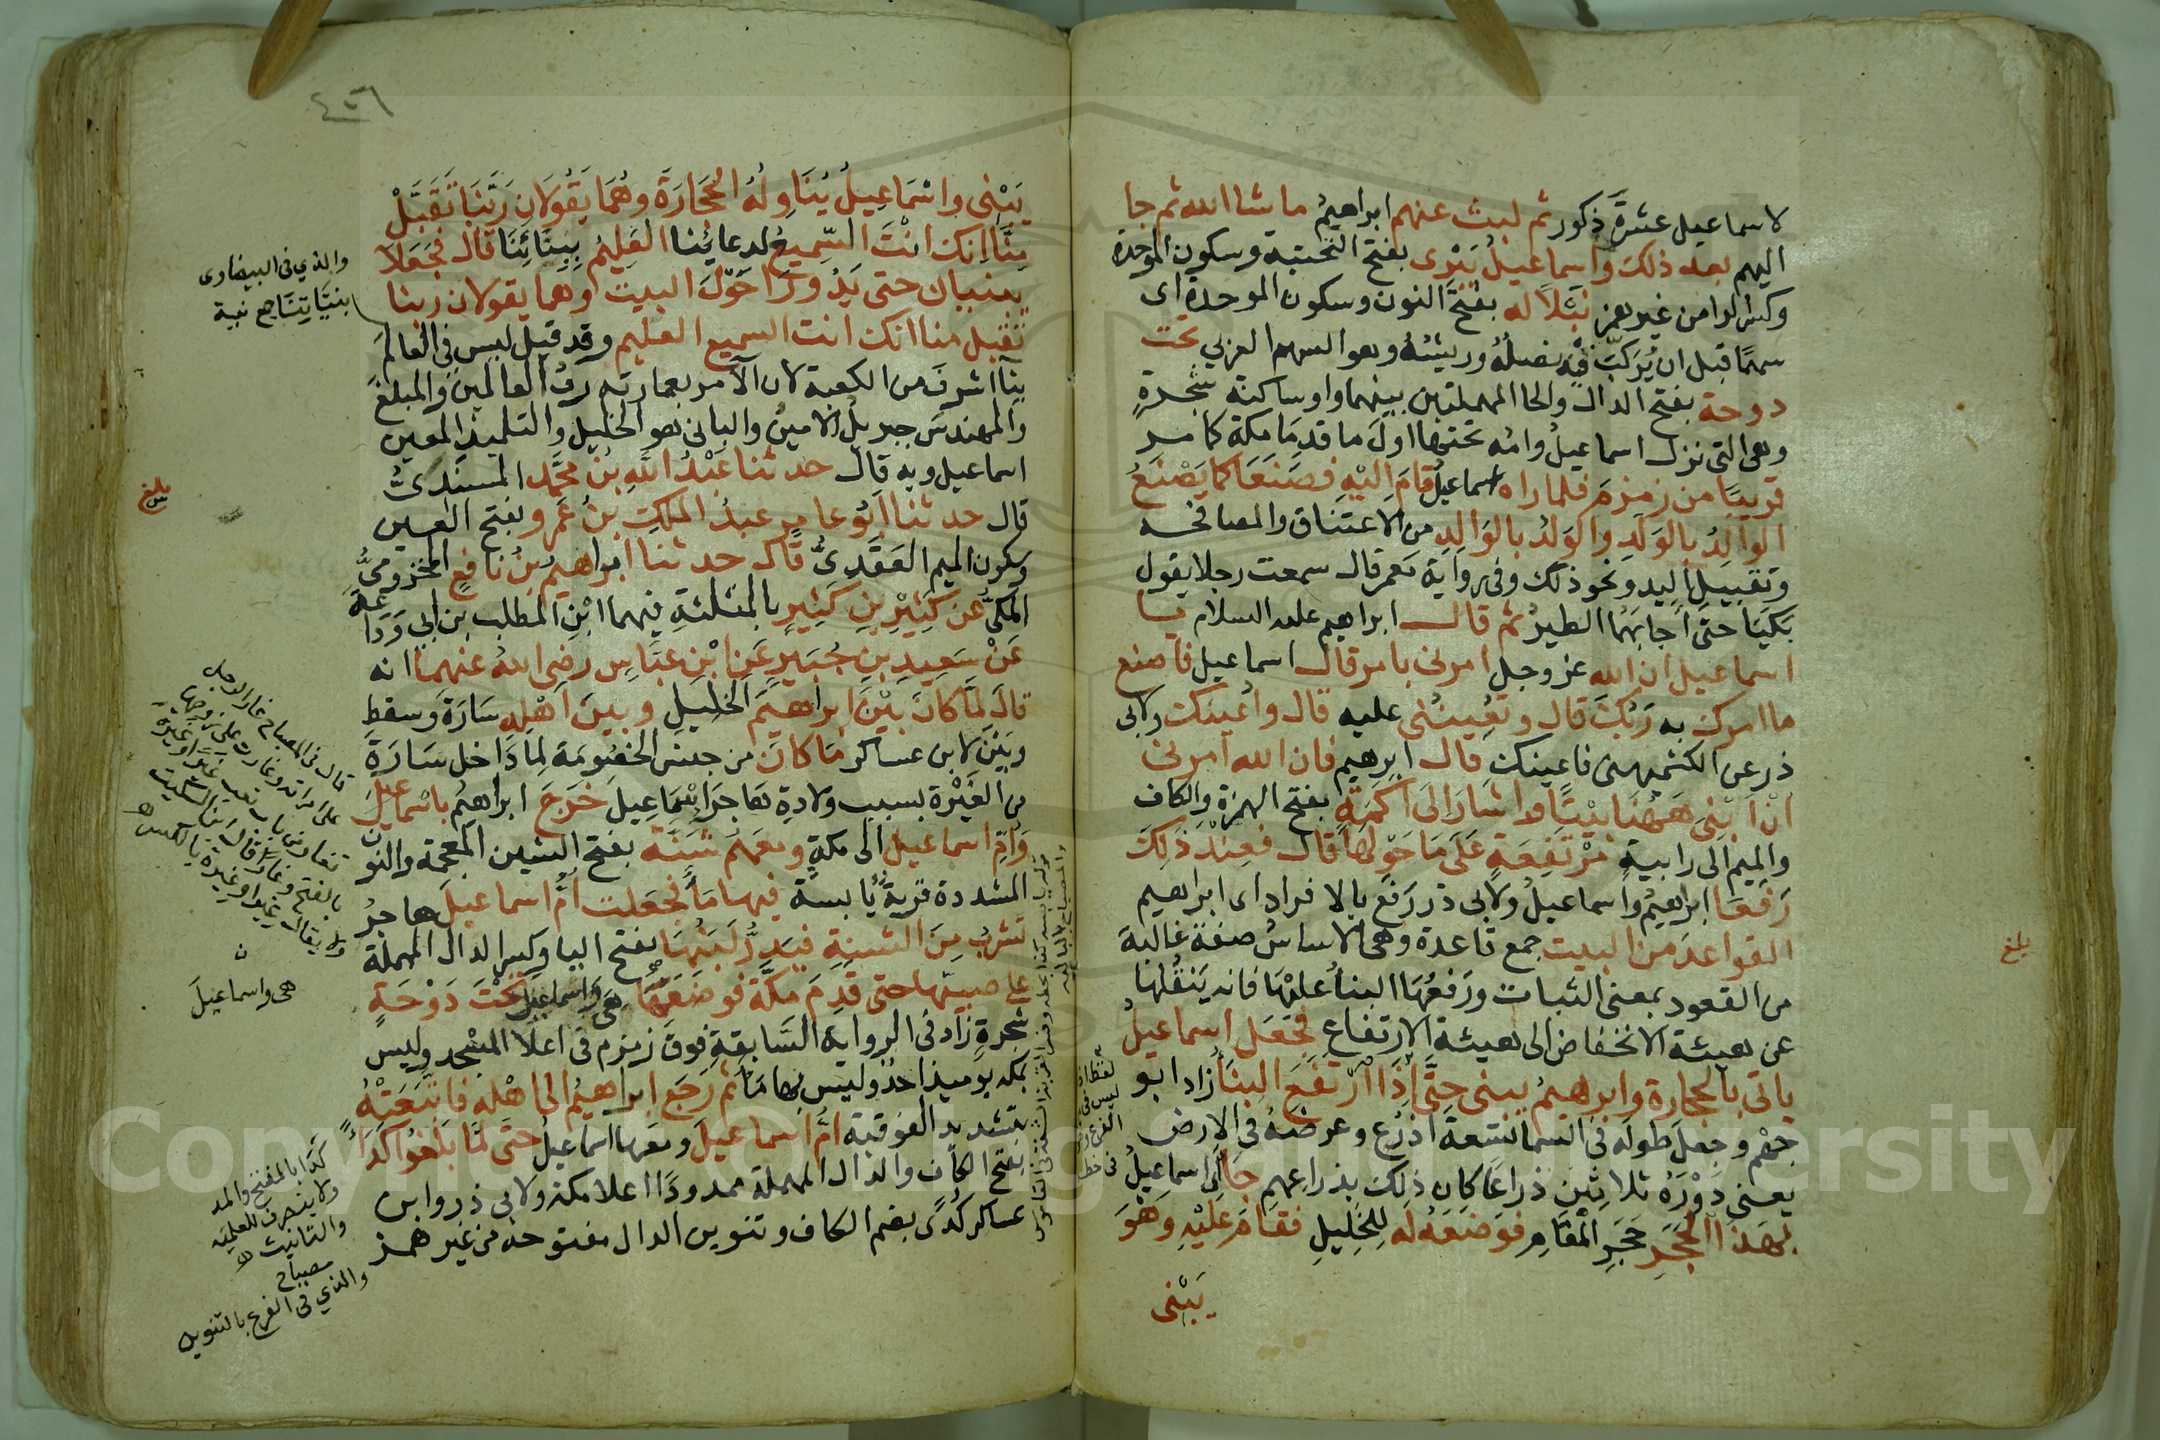 لاسماعيل عشرة ذكور ثم لبث عنهم ابراهيم ما شا الله ثم جا
اليهم بعد ذلك واسماعيل يبرى بفتح التحتية وسكون الموحدة
وكسر الرا من غير همز نبلا له بفتح النون وسكون الموحدة اى
سهما قبل ان يركب فيه نصله وريشه وهو السهم العربي تحت
دوحة بفتح الدال والحا المهملتين بينهما واو ساكنة شجرة
وهى التى نزل اسماعيل وامه تحتها اول ما قدما مكة كما مر
قريبا من زمزم فلما راه اسماعيل قام اليه فصنعا كما يصنع
الوالد بالولد والولد بالوالد من الاعتناق والمصافحه
وتقبيل اليد ونحو ذلك وفى رواية معمر قال سمعت رجلا يقول
بكيا حتى اجابهما الطير ثم قال ابراهيم عليه السلام يا
اسماعيل ان الله عز وجل امرنى بامر قال اسماعيل فاصنع
ما امرك به ربك قال وتعيننى عليه قال واعينك ولابى
ذر عن الكشميهنى فاعينك قال ابرهيم فان الله امرنى
ان ابنى ههنا بيتا واشار الى اكمة بفتح الهمزة والكاف
والميم الى رابية مرتفعة على ما حولها قال فعند ذلك
رفعا ابراهيم واسماعيل ولابى ذر رفع بالافراد اى ابراهيم
القواعد من البيت جمع قاعدة وهى الاساس صفة غالبة
من القعود بمعنى الثبات ورفعها البنا عليها فانه ينقلها
عن هيئة الانخفاض الى هيئة الارتفاع فجعل اسماعيل
ياتى بالحجارة وابرهيم يبنى حتى اذا ارتفع البنا زاد ابو
جهم وجعل طوله فى السما تسعة اذرع وعرضه فى الارض
يعنى دوره ثلاثين ذراعا كان ذلك بذراعهم جا اى اسماعيل
بهذا الحجر حجر المقام فوضعه له للخليل فقام عليه وهو
يبنى
بلغ
٤٣٦
يبنى واسماعيل يناوله الحجارة وهما يقولان ربنا تقبل
منا انك انت السميع لدعائنا العليم ببنائنا قال فجعلا
يبنيان حتى يدورا حول البيت وهما يقولان ربنا
تقبل منا انك انت السميع العليم وقد قيل ليس فى العالم
بنا اشرف من الكعبة لان الآمر بعمارته رب العالمين والمبلغ
والمهندس جبريل الامين والبانى هو الخليل والتلميذ المعين
اسماعيل وبه قال حدثنا عبد الله بن محمد المسندى
قال حدثنا ابو عامر عبد الملك بن عمرو بفتح العين
وسكون الميم العقدى قال حدثنا ابراهيم بن نافع المخزومى
المكى عن كثير بن كثير بالمثلثة فيهما ابن المطلب بن ابي وداعة
عن سعيد بن جبير عن ابن عباس رضى الله عنهما انه
قال لما كان بين ابراهيم الخليل وبين اهله سارة وسقط
وبين لابن عساكر ما كان من جنس الخصومة لما داخل سارة
من الغيرة بسبب ولادة هاجر اسماعيل خرج ابراهيم باسماعيل
وام اسماعيل الى مكة ومعهم شنة بفتح الشين المعجمة والنون
المشددة قربة يابسة فيها ما فجعلت ام اسماعيل هاجر
تشرب من الشنة فيدر لبنها بفتح اليا وكسر الدال المهملة
على صبيها حتى قدم مكة فوضعهما هى واسماعيل تحت دوحة
شجرة زاد فى الرواية السابقة فوق زمزم فى اعلا المسجد وليس
بمكه يوميذ احد وليس بها ما ثم رجع ابراهيم الى اهله فاتبعته
بتشديد الفوقية ام اسماعيل ومعها اسماعيل حتى لما بلغوا كداء
بفتح الكاف والدال المهملة ممدودا اعلا مكة ولابى ذر وابن
عساكر كدى بضم الكاف وتنوين الدال مفتوحة من غير همز
والذي فى البيضاوى
بلغ
قال فى المصباح غار الرجل
على امراته وغارت على زوجها
هى واسماعيل
كدا بالفتح والمد
ولا ينصرف للعلمية
والتانيث اهـ
مصباح
والذي فى الفرع بالتنوين
Copyright © King Saud University